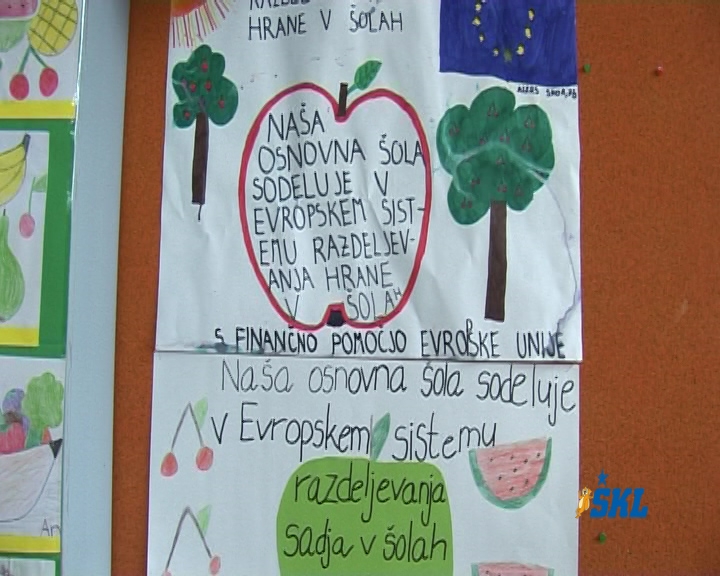 HRANE V ŠOLAH
NAŠA
OSNOVNA ŠOLA
SODELUJE V
EVROPSKEM SIST-
EMU RAZDELJEV-
ANJA HRANE
V ŠOLAH
S FINANČNO POMOČJO EVROPSKE UNIJE
Naša osnovna šola sodeluje
v Evropskem sistemu
razdeljevanja
sadja v šolah
ŠKL